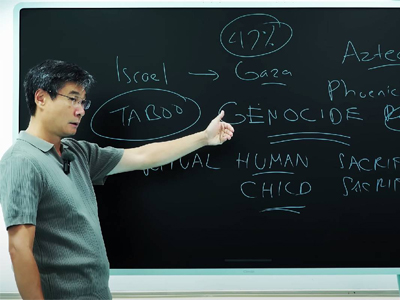 47%
Israel → Gaza Aztec
Phoenic
TABOO GENOCIDE
TUAL HUMAN SACRIF
CHILD SACRIF